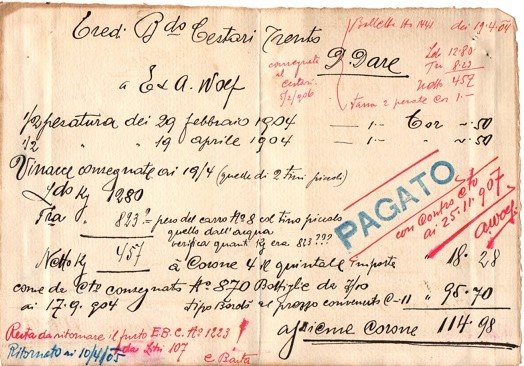 Eredi Bdo Cestari Trento
Bolletta No 1441 dei 19.4.04
D. Dare
Ldo 1280
Tra 823
Netto 457
Tarra 2 pesate Cor 1.—
consegnata
il
Cestari
5/2/906
a E & A. Woef
1/2 pesatura dei 29 febbraio 1904 — 1.— Cor ".50
1/2 " " 19 aprile 1904 — 1.— " ".50
Vinacce consegnate ai 19/4 (quede di 2 tini piccoli)
Ldo Kg 1280
Tra " 823 ?= peso del carro No 8 col tino piccolo
quello dell'acqua
verifica quanti Kg era 823???
Netto Kg 457 à Corone 4 il quintale importa " 18.28
PAGATO
con contro Cto
ai 25.11.907
come da Cto consegnato No 870 Bottiglie da 7/10
ai 17.9.904 tipo Bordò al prezzo convenuto C-11 " 96.70
assieme Corone 114.98
Resta da ritornare il fusto E.B.C. No 1223
da Litri 107
Ritornato ai 10/4/05